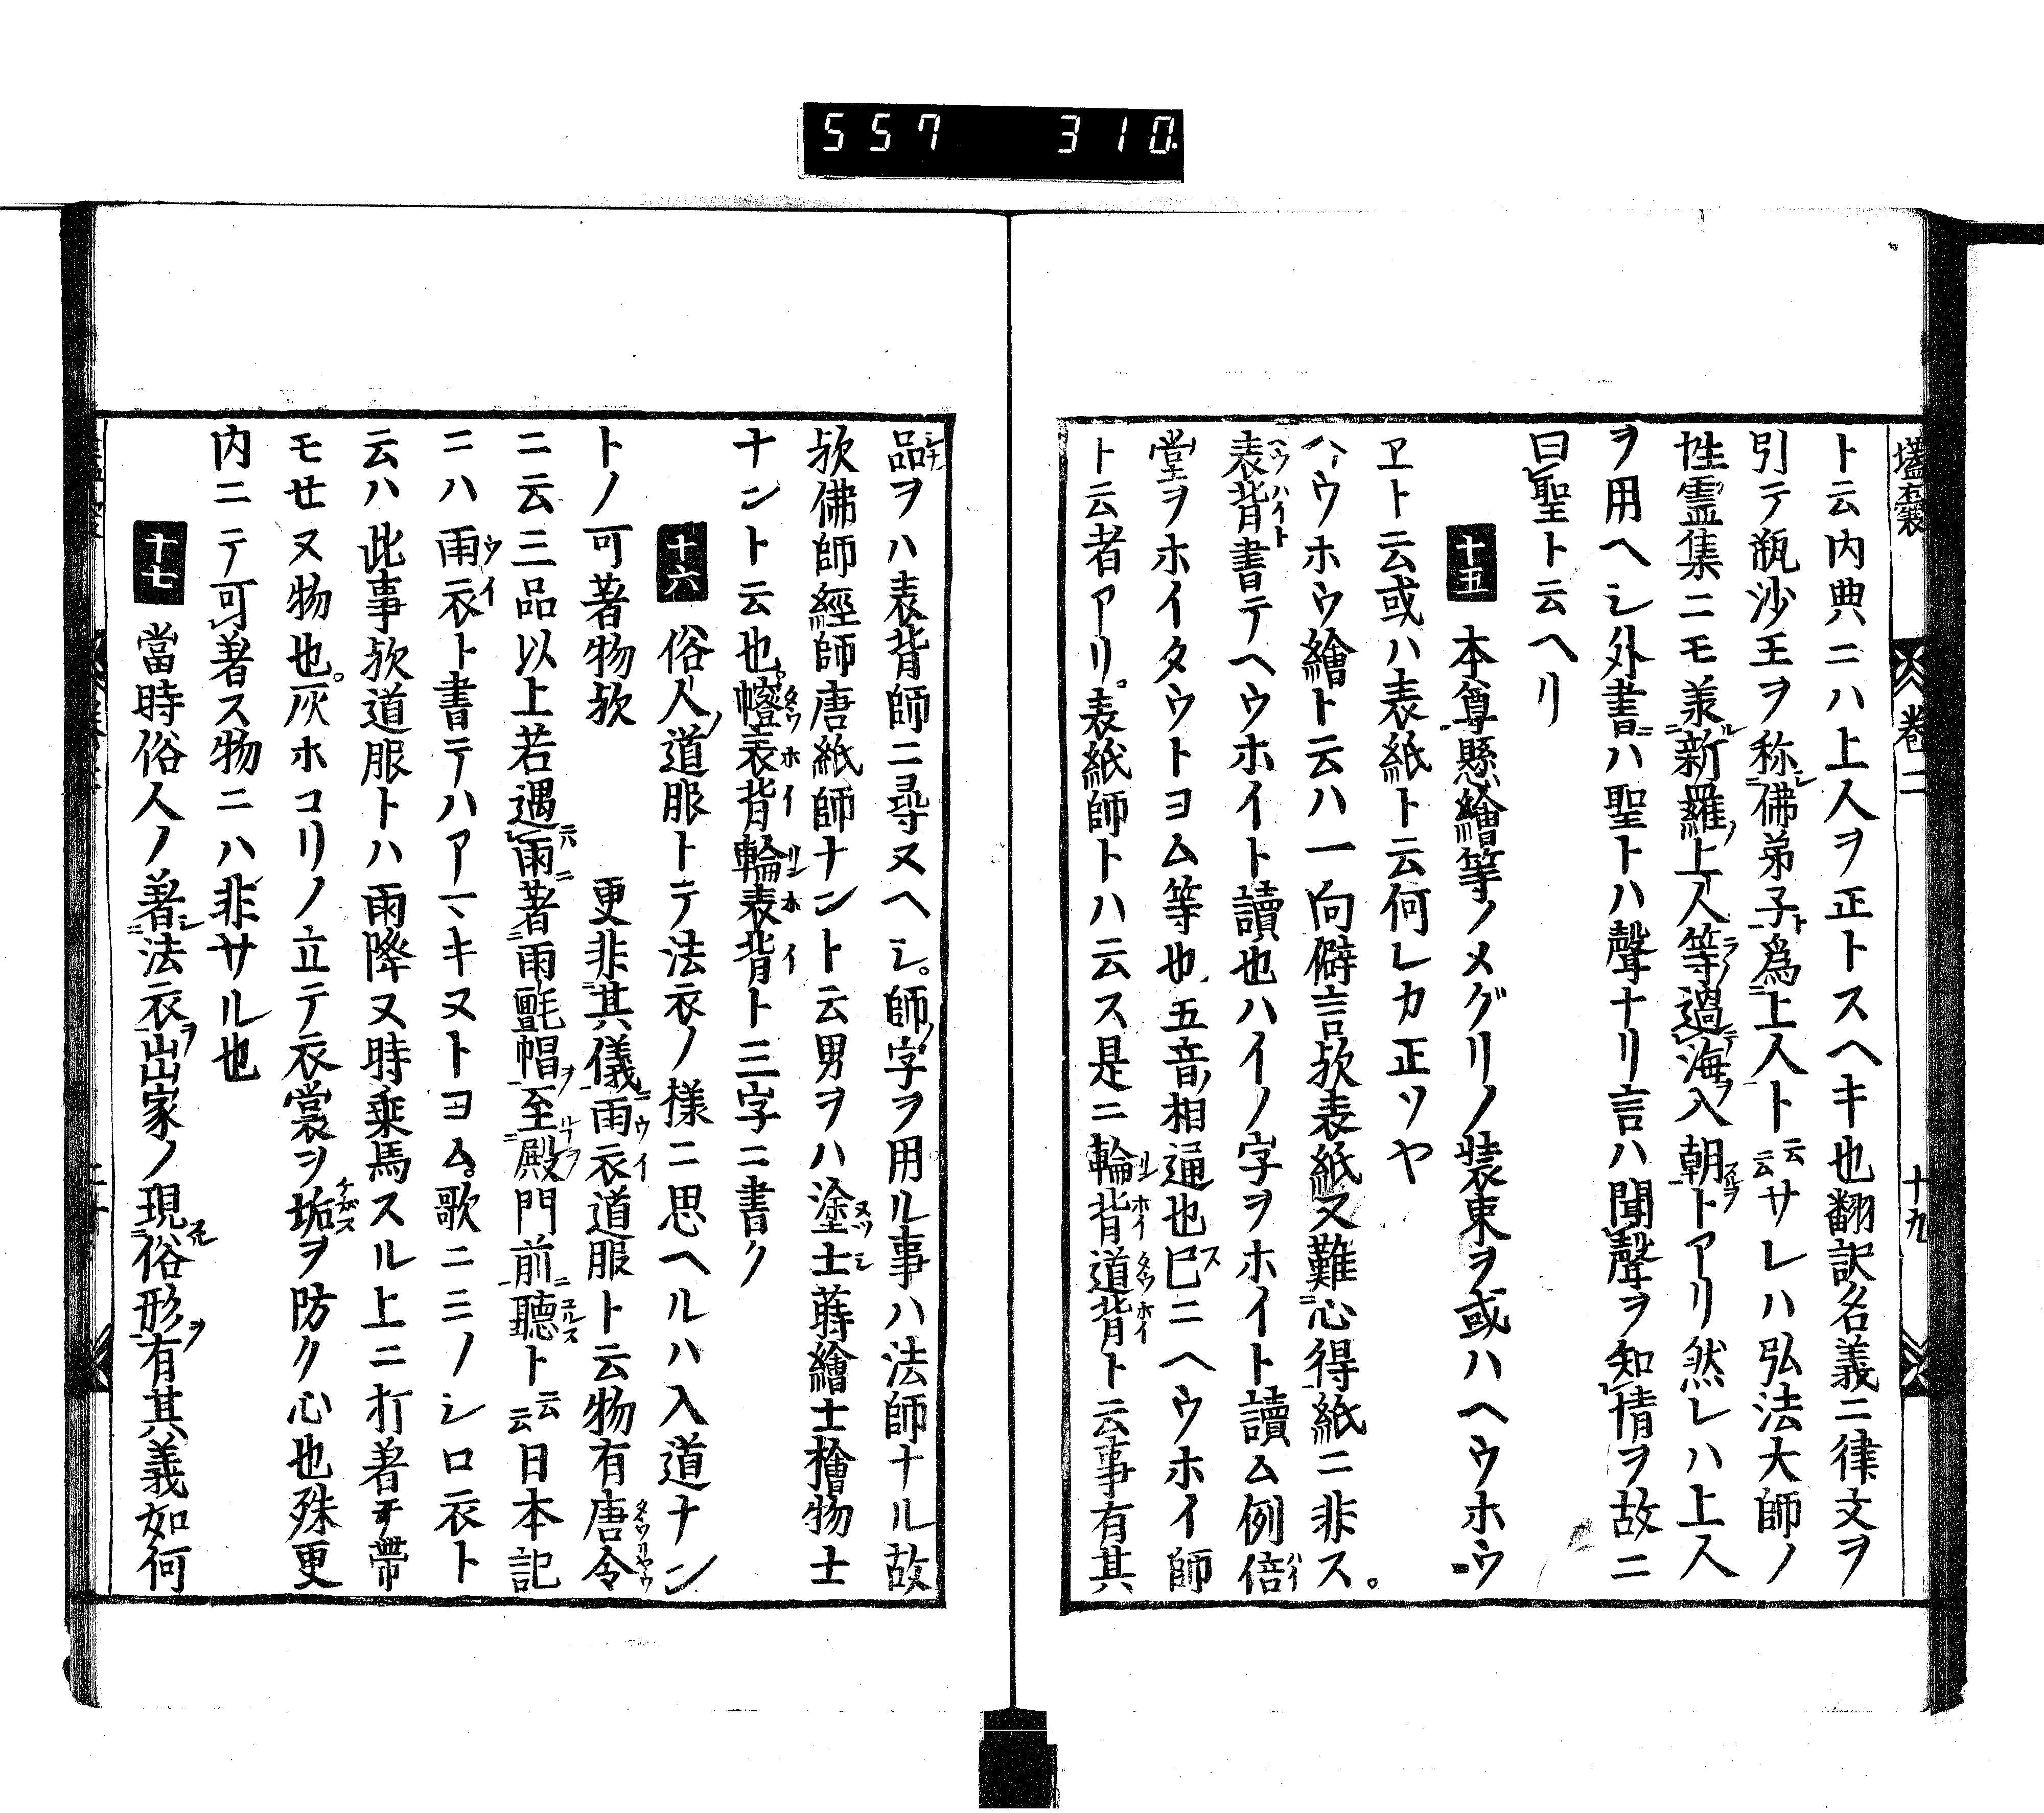 557 310
壒囊 卷二 十九
ト云内典ニハ上人ヲ正トスヘキ也翻訳名義ニ律文ヲ
引テ瓶沙王ヲ称佛弟子為上人ト云云サレハ弘法大師ノ
性霊集ニモ羕新羅上人等過海入朝トアリ然レハ上人
ヲ用ヘシ外書ハ聖トハ聲ナリ言ハ聞聲ヲ知情ヲ故ニ
曰聖ト云ヘリ
十五 本尊懸繪等ノメグリノ装束ヲ或ハヘウホウ
ヱト云或ハ表紙ト云何レカ正ソヤ
ヘウホウ繪ト云ハ一向僻言欤表紙又難心得紙ニ非ス。
表背書テヘウホイト讀也ハイノ字ヲホイト讀ム例倍
堂ヲホイタウトヨム等也五音相通也巳ニヘウホイ師
ト云者アリ。表紙師トハ云ス是ニ輪背道背ト云事有其
品ヲハ表背師ニ尋ヌヘシ。師字ヲ用ル事ハ法師ナル故
欤佛師經師唐紙師ナント云男ヲハ塗士蒔繪士檜物士
ナント云也。幢表背輪表背ト三字ニ書ク
十六 俗人道服トテ法衣ノ様ニ思ヘルハ入道ナン
トノ可著物欤 更非其儀雨衣道服ト云物有唐令
ニ云三品以上若遇雨著雨氈帽至殿門前聴ト云云日本記
ニハ雨衣ト書テハアマキヌトヨム。歌ニミノシロ衣ト
云ハ此事欤道服トハ雨降ヌ時乗馬スル上ニ打著テ帶
モせヌ物也。灰ホコリノ立テ衣裳ヲ垢ヲ防ク心也殊更
内ニテ可著ス物ニハ非サル也
十七 當時俗人ノ著法衣出家ノ現俗形有其義如何